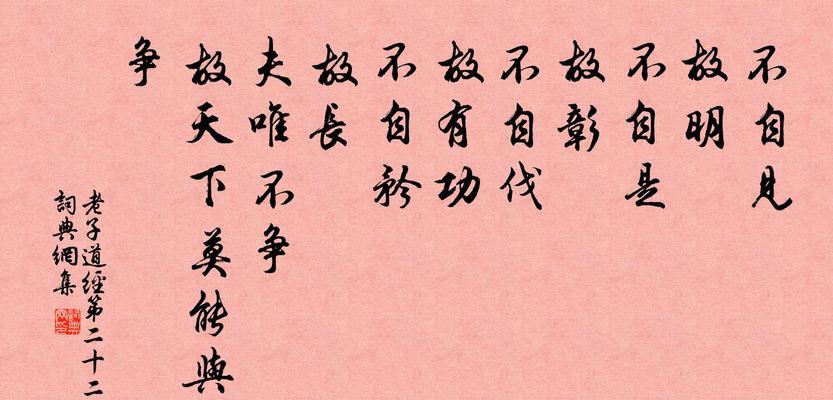 不自見
故明
不自是
故彰
不自伐
故有功
不自矜
故長
夫唯不争
故天下莫能與
争
老子道經第二十二
詞典網集